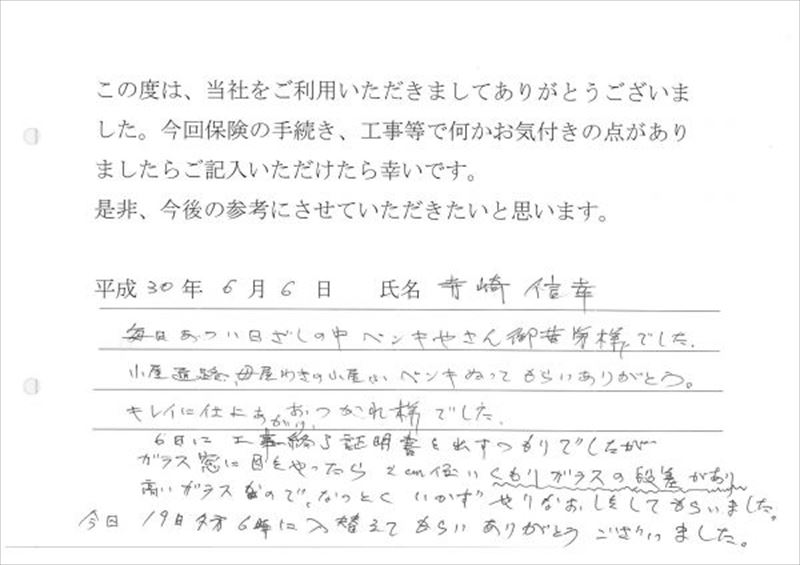 この度は、当社をご利用いただきましてありがとうございま
した。今回保険の手続き、工事等で何かお気付きの点があり
ましたらご記入いただけたら幸いです。
是非、今後の参考にさせていただきたいと思います。
平成 30 年 6 月 6 日 氏名 寺崎 信幸
毎日あつい日ざしの中ペンキやさん御苦労様でした。
小屋 母屋わきの小屋 ペンキぬってもらいありがとう。
キレイに仕上あがり、おつかれ様でした。
6日に工事終了証明書を出すつもりでしたが
ガラス窓に目をやったら2cm位いくもりガラスの段差があり
高いガラスなので、なっとくいかずやりなおしをしてもらいました。
今日19日夕方6時に入替えてもらいありがとうございました。